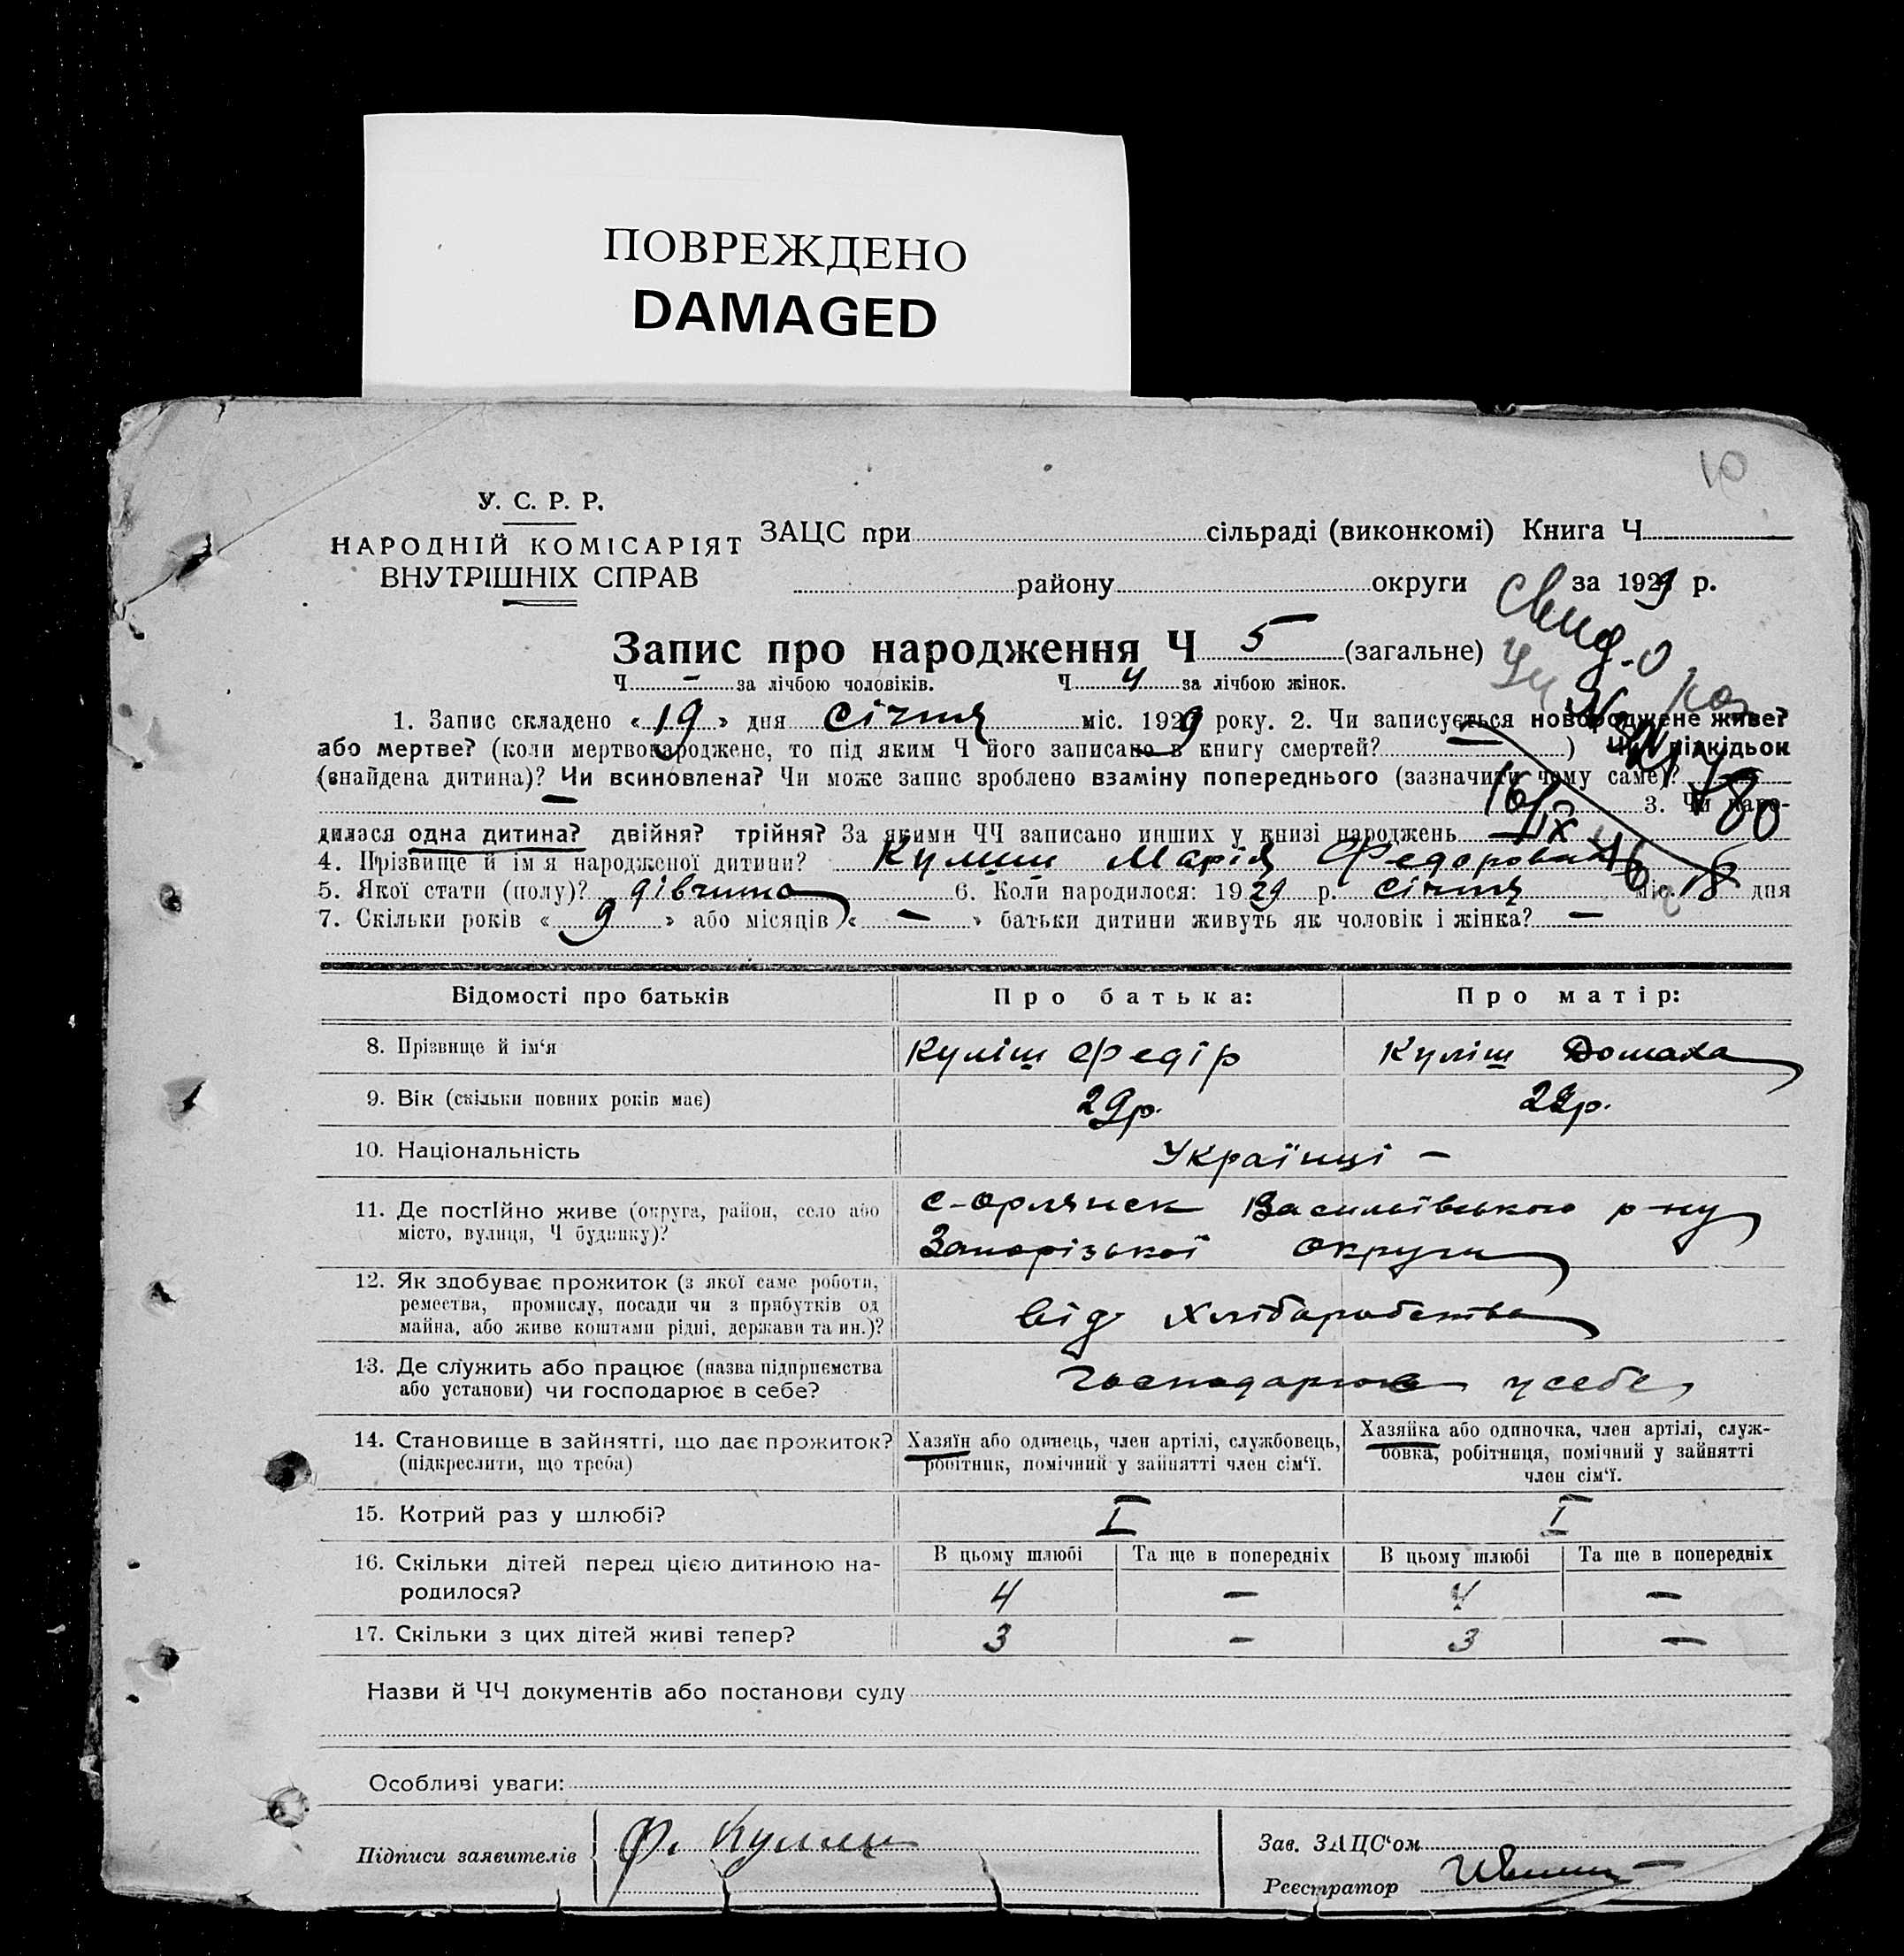 ПОВРЕЖДЕНО
DAMAGED
10
У. С. Р. Р.
НАРОДНІЙ КОМІСАРІЯТ
ВНУТРІШНІХ СПРАВ
ЗАЦС при сільраді (виконкомі) Книга Ч
району округи за 1929 р.
Свид-о
Запис про народження Ч 5 (загальне)
Ч - за лічбою чоловіків. Ч 4 за лічбою жінок.
1. Запис складено « 19 » дня січня міс. 1929 року. 2. Чи записується новороджене живе?
або мертве? (коли мертвонароджене, то під яким Ч його записано в книгу смертей? ) Чи підкідьок
(знайдена дитина)? Чи всиновлена? Чи може запис зроблено взаміну попереднього (зазначити чому саме)?
16/IX 46
3. Чи наро-
дилася одна дитина? двійня? трійня? За якими ЧЧ записано инших у книзі народжень
4. Прізвище й ім'я народженої дитини? Куліш Марія Федоровна
5. Якої стати (полу)? дівчина 6. Коли народилося: 1929 р. січня міс. 18 дня
7. Скільки років « 9 » або місяців « - » батьки дитини живуть як чоловік і жінка? -
Відомості про батьків Про батька: Про матір:
8. Прізвище й ім'я Куліш Федір Куліш Домаха
9. Вік (скільки повних років має) 29р.
10. Національність Українці -
11. Де постІйно живе (округа, район, село або
місто, вулиця, Ч будинку)?
с-Орлянск Василівського р-ну
Запорізької округи
12. Як здобуває прожиток (з якої саме роботи,
ремества, промислу, посади чи з прибутків од
майна, або живе коштами рідні, держави та ин.)?
від хліборобства
13. Де служить або працює (назва підприємства
або установи) чи господарює в себе?
Господарює у себе
14. Становище в зайнятті, що дає прожиток?
(підкреслити, що треба)
Хазяїн або одинець, член артілі, службовець,
робітник, помічний у зайнятті член сім'ї.
Хазяйка або одиночка, член артілі, служ-
бовка, робітниця, помічний у зайнятті
член сім'ї.
15. Котрий раз у шлюбі? I I
16. Скільки дітей перед цією дитиною на-
родилося?
В цьому шлюбі Та ще в попередніх В цьому шлюбі Та ще в попередніх
4 - 4 -
17. Скільки з цих дітей живі тепер? 3 - 3 -
Назви й ЧЧ документів або постанови суду
Особливі уваги:
Підписи заявителів Ф. Куліш
Зав. ЗАЦС'ом
Реєстратор